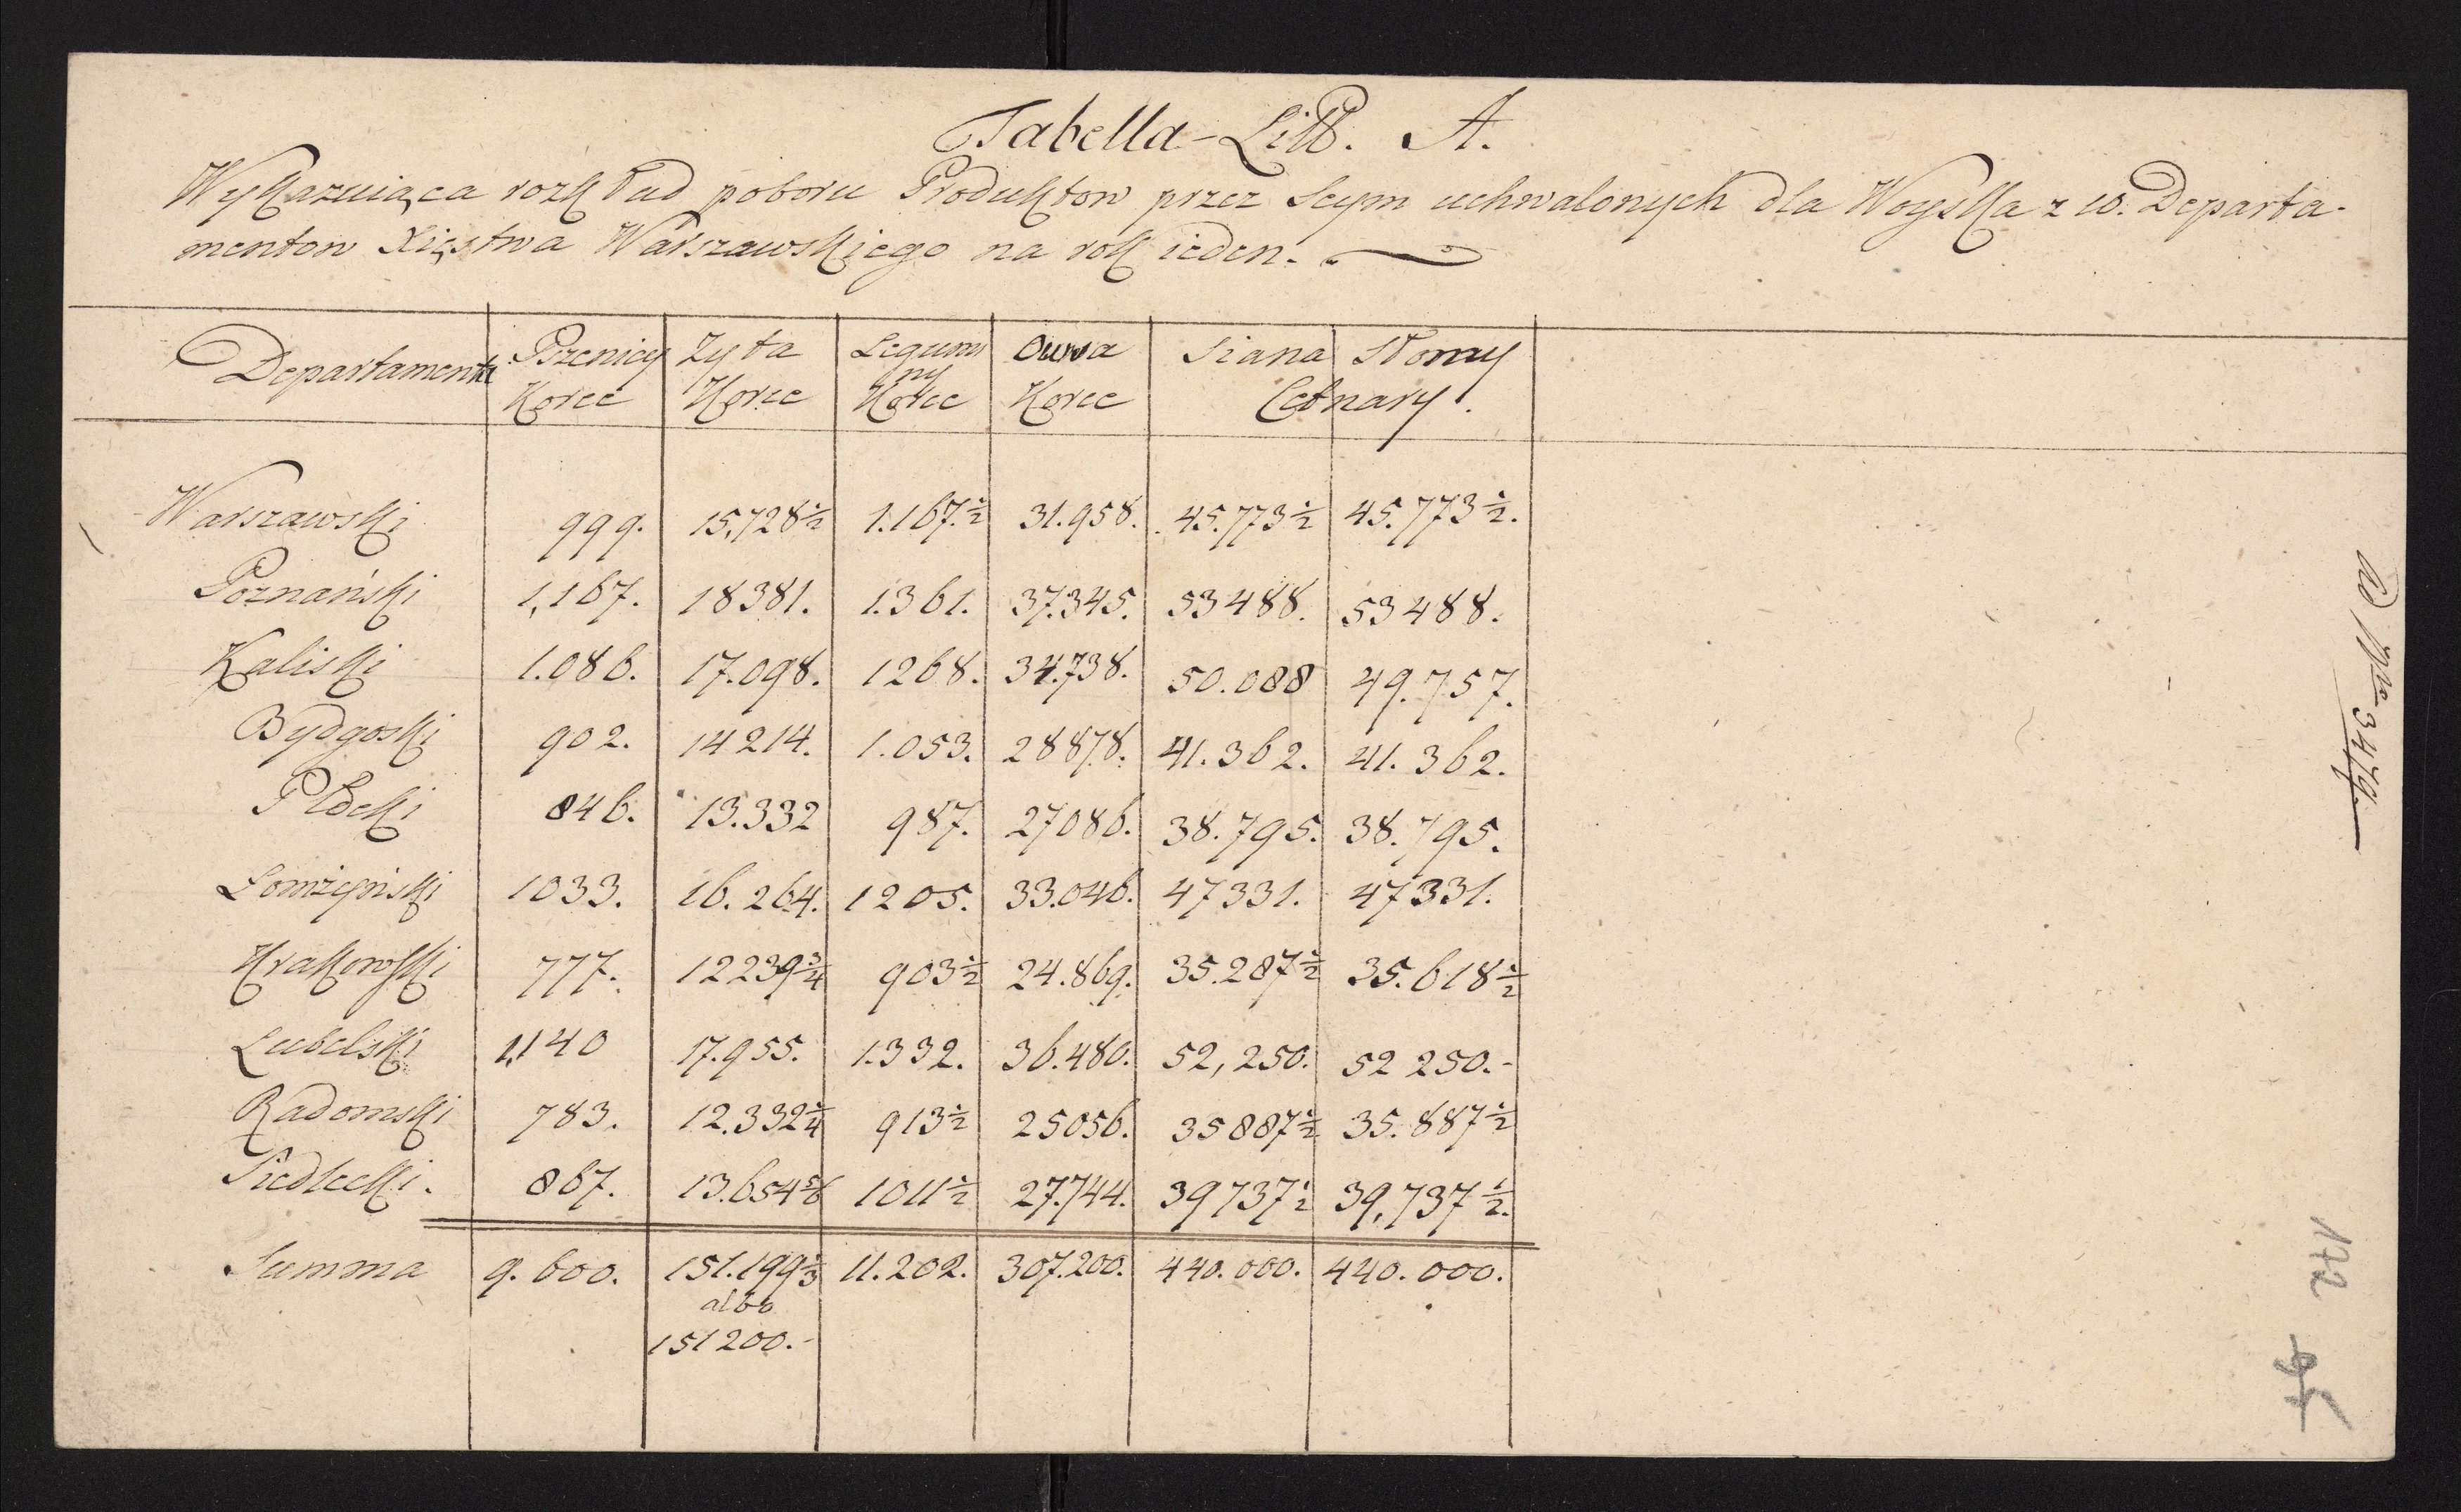 Tabella Litt. A.
Wykazuiąca rozkład poboru Produktow przez Seym uchwalonych dla Woyska z 10. Departa-
mentow Xięstwa Warszawskiego na rok ieden.
Departamenta Pszenicy Zyta Legumi Owsa Siana Słomy
ny
Korce Korce Korce Korce Cetnary.
Warszawski 999. 15,728½ 1.167.½ 31.958. 45.773½ 45.773½.
Poznański 1,167. 18381. 1.361. 37.345. 53488. 53488.
Kaliski 1.086. 17.098. 1268. 34.738. 50.088 49.757.
Bydgoski 902. 14214. 1.053. 28878. 41.362. 41.362.
Płocki 846. 13.332 987. 27086. 38.795. 38.795.
Łomżyński 1033. 16.264. 1205. 33.046. 47331. 47331.
Krakowski 777. 12239¾ 903½ 24.869. 35.287½ 35.618½
Lubelski 1,140 17.955. 1.332. 36.480. 52,250. 52 250.-
Radomski 783. 12.332¼ 913½ 25056. 35887½ 35.887½
Siedlecki. 867. 13.654 1011½ 27.744. 39737½ 39,737½.
Summa 9.600. 151.199⅔ 11.202. 307.200. 440.000. 440.000.
albo
151200.-
ad Nro 3479.
172
95